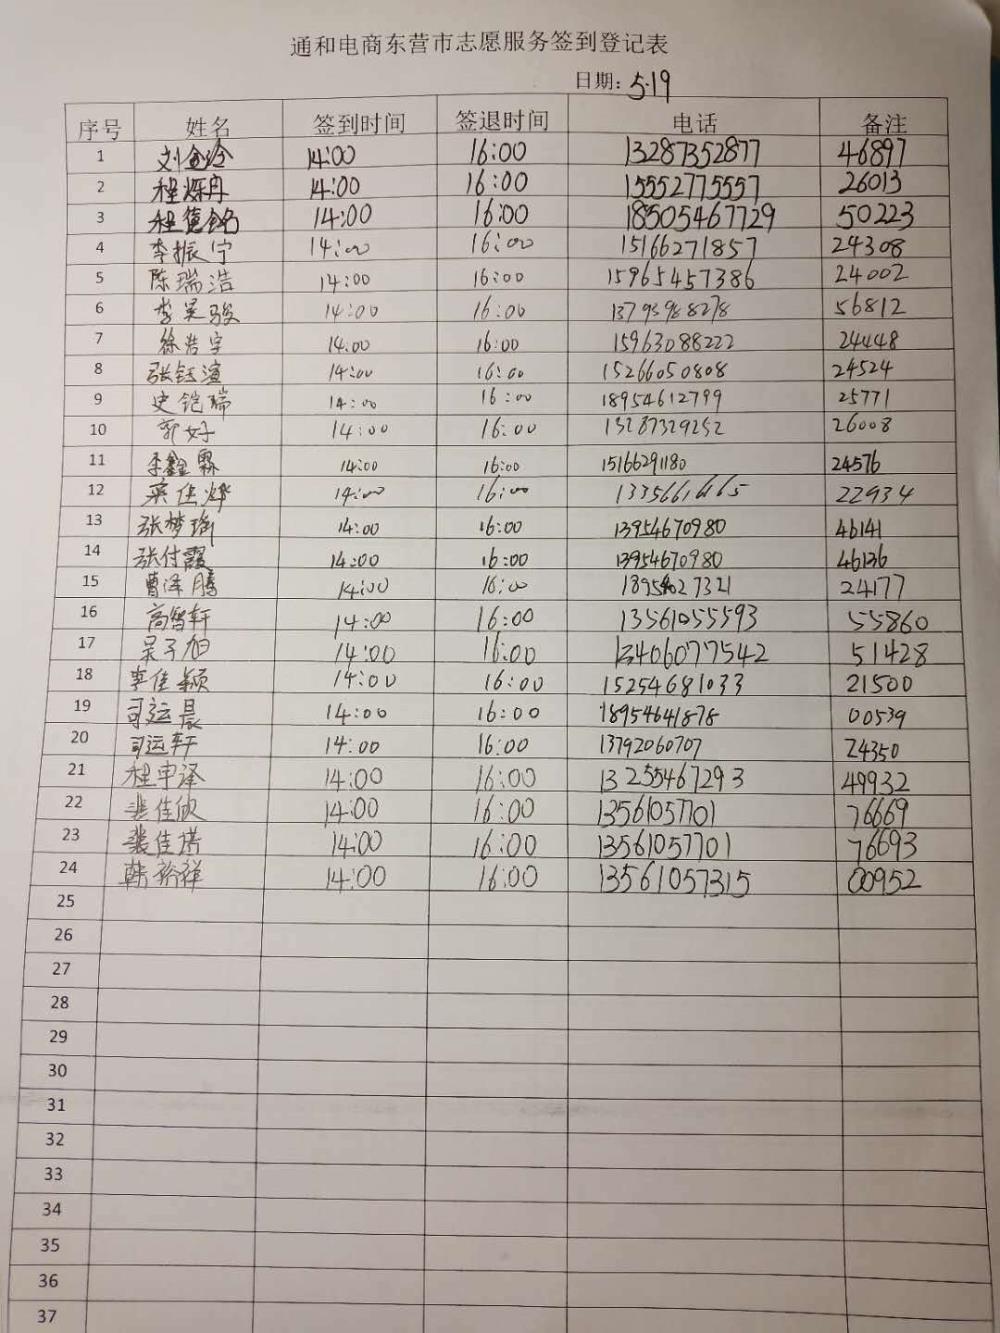 通和电商东营市志愿服务签到登记表
日期: 5.19
序号 姓名 签到时间 签退时间 电话 备注
1 刘金玲 14:00 16:00 13287352877 46897
2 程烁冉 14:00 16:00 15552775557 26013
3 程德铭 14:00 16:00 18505467729 50223
4 李振宁 14:00 16:00 15166271857 24308
5 陈瑞浩 14:00 16:00 15965457386 24002
6 李昊骏 14:00 16:00 13793988278 56812
7 徐浩宇 14:00 16:00 15963088222 24448
8 张钰渲 14:00 16:00 15266050808 24524
9 史铠瑞 14:00 16:00 18954612799 25771
10 郭好 14:00 16:00 13287329252 26008
11 李鑫霖 14:00 16:00 15166291180 24576
12 荣佳烨 14:00 16:00 22934
13 张梦瑜 14:00 16:00 13954670980 46141
14 张付霞 14:00 16:00 13954670980 46136
15 曹泽腾 14:00 16:00 24177
16 高智轩 14:00 16:00 13561055593 55860
17 吴子旭 14:00 16:00 13406077542 51428
18 李佳颖 14:00 16:00 15254681033 21500
19 司运晨 14:00 16:00 18954641878 00539
20 司运轩 14:00 16:00 13792060707 24350
21 程申泽 14:00 16:00 13255467293 49932
22 裴佳欣 14:00 16:00 13561057701 76669
23 裴佳琪 14:00 16:00 13561057701 76693
24 韩裕祥 14:00 16:00 13561057315 00952
25
26
27
28
29
30
31
32
33
34
35
36
37